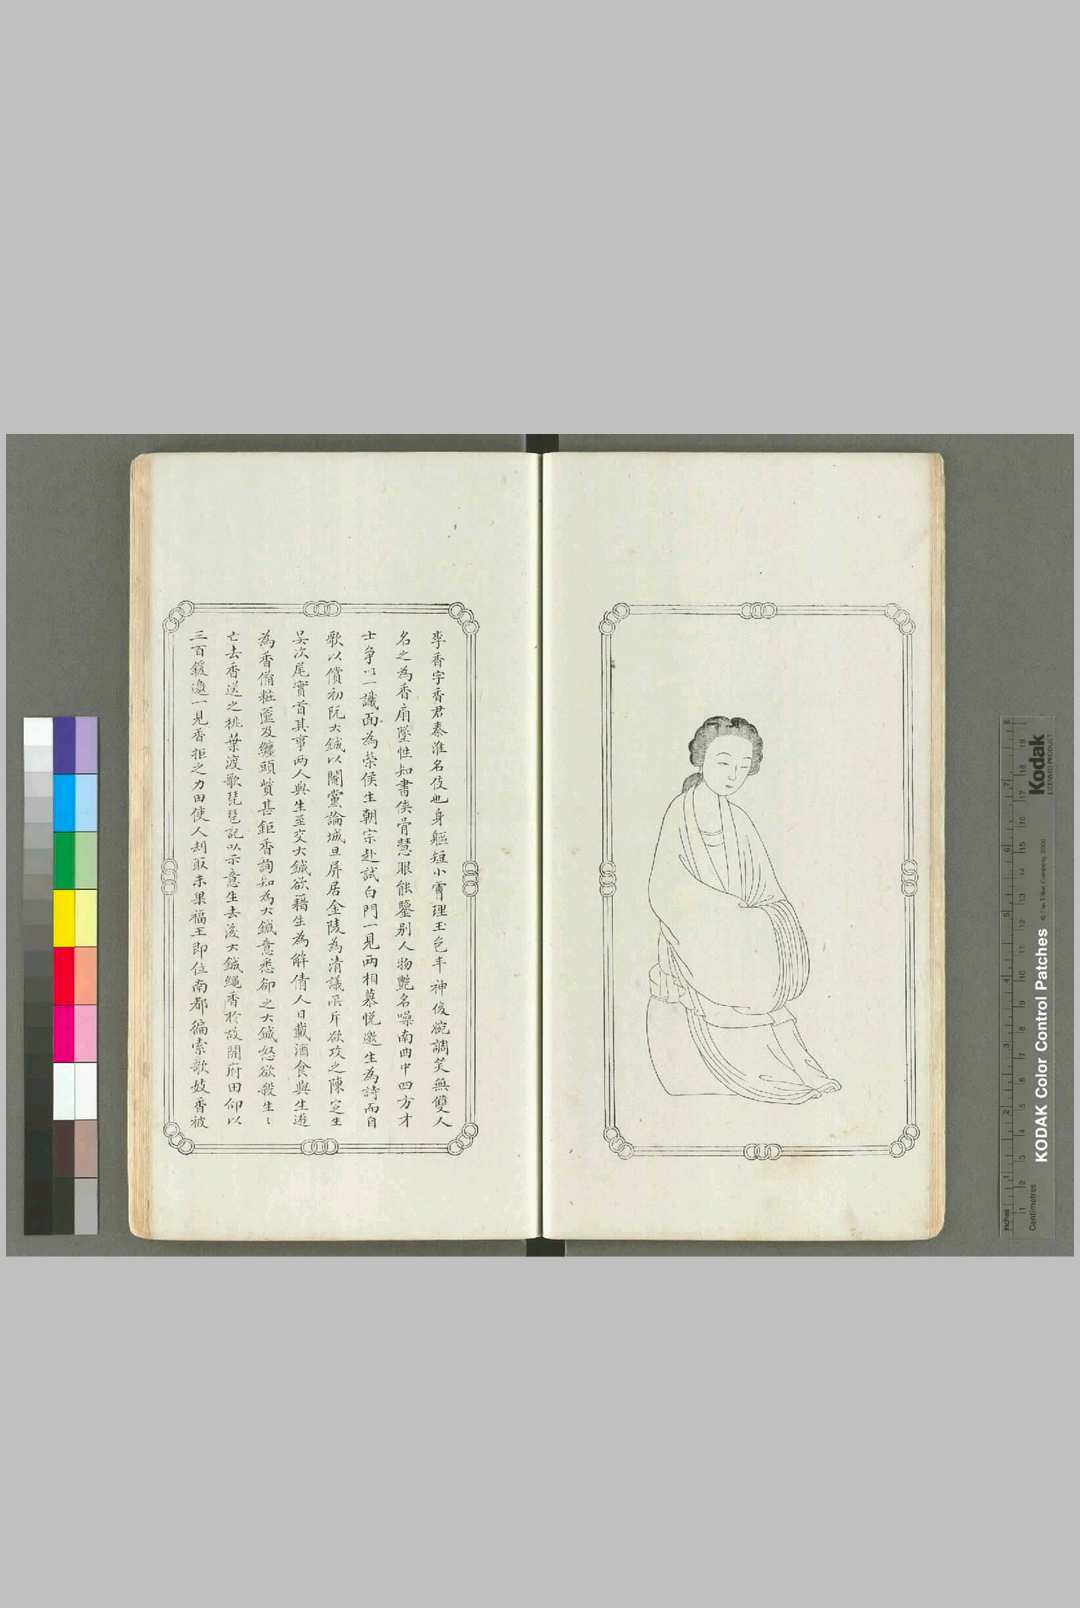 李香字香君秦淮名伎也身軀短小膚理玉色丰神俊婉調笑無雙人
名之為香扇墜性知書俠骨慧眼能鑒別人物艷名噪南曲中四方才
士争以一識面為榮侯生朝宗赴試白門一見兩相慕悅邀生為詩而自
歌以償初阮大鋮以閹黨論城旦屏居金陵為清議所斥欲攻之陳定生
吳次尾實首其事两人與生至交大鋮欲藉生為解倩人日載酒食與生遊
為香備粧匳及纏頭貲甚鉅香詢知為大鋮意悉卻之大鋮怒欲殺生〻
亡去香送之桃葉渡歌琵琶記以示意生去後大鋮繩香於故開府田仰以
三百鍰邀一見香拒之力田使人刦取未果福王即位南都徧索歌妓香被
Kodak
LICENSED PRODUCT
KODAK Color Control Patches
© The Tiffen Company, 2000
Inches
Centimetres